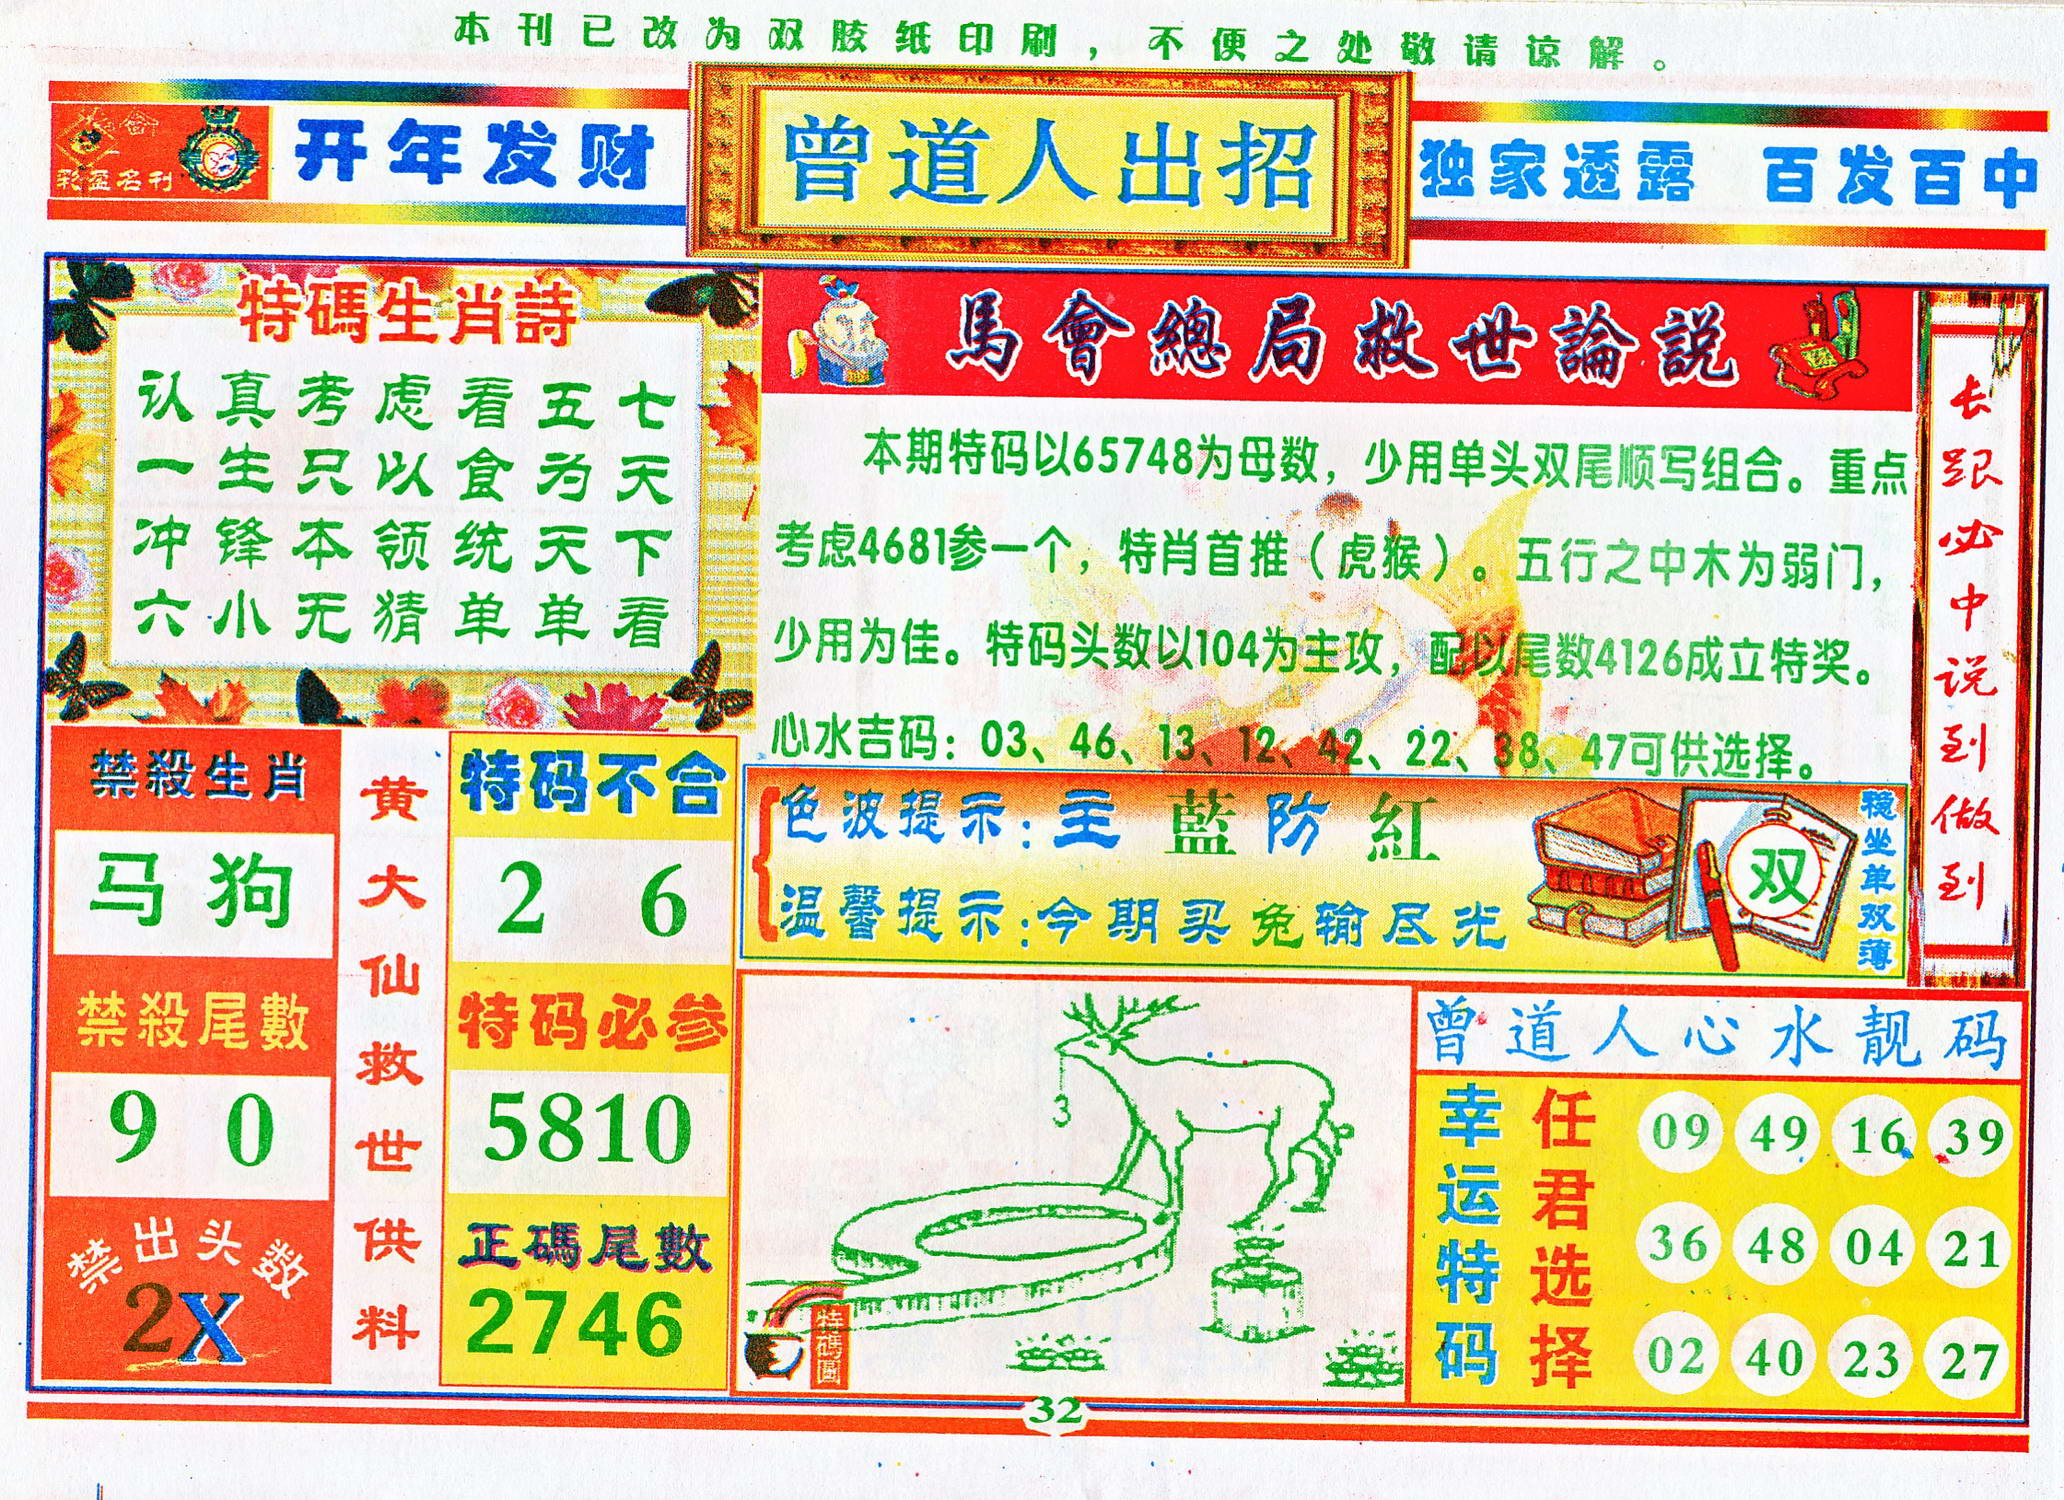 本刊已改为双胶纸印刷，不便之处敬请谅解。
彩盈名刊
开年发财
曾道人出招
独家透露 百发百中
特碼生肖詩
认真考虑看五七
一生只以食为天
冲锋本领统天下
六小无猜单单看
馬會總局救世論説
本期特码以65748为母数，少用单头双尾顺写组合。重点
考虑4681参一个，特肖首推（虎猴）。五行之中木为弱门，
少用为佳。特码头数以104为主攻，配以尾数4126成立特奖。
心水吉码：03、46、13、12、42、22、38、47可供选择。
长跟必中说到做到
色波提示:主藍防紅
温馨提示:今期买兔输尽光
双
稳坐单双薄
禁殺生肖
马 狗
禁殺尾數
9 0
禁出头数
2X
黄大仙救世供料
特码不合
2 6
特码必参
5810
正碼尾數
2746
3
特碼圖
曾道人心水靓码
幸运特码
任君选择
09 49 16 39
36 48 04 21
02 40 23 27
32